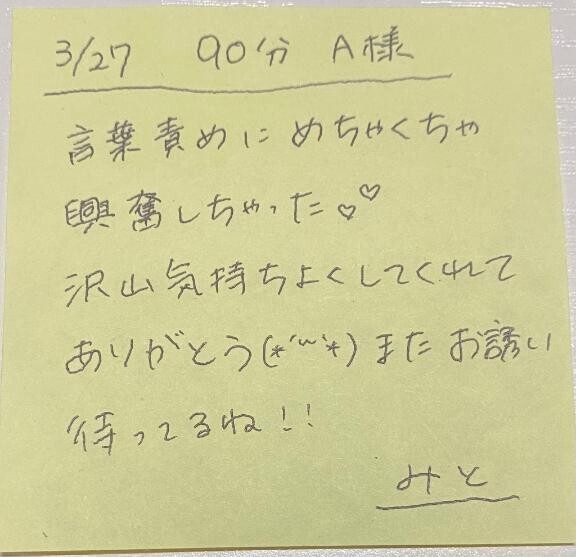 3/27 90分 A様
言葉責めにめちゃくちゃ
興奮しちゃった♡♡
沢山気持ちよくしてくれて
ありがとう(*´˘`*)またお誘い
待ってるね!!
みと